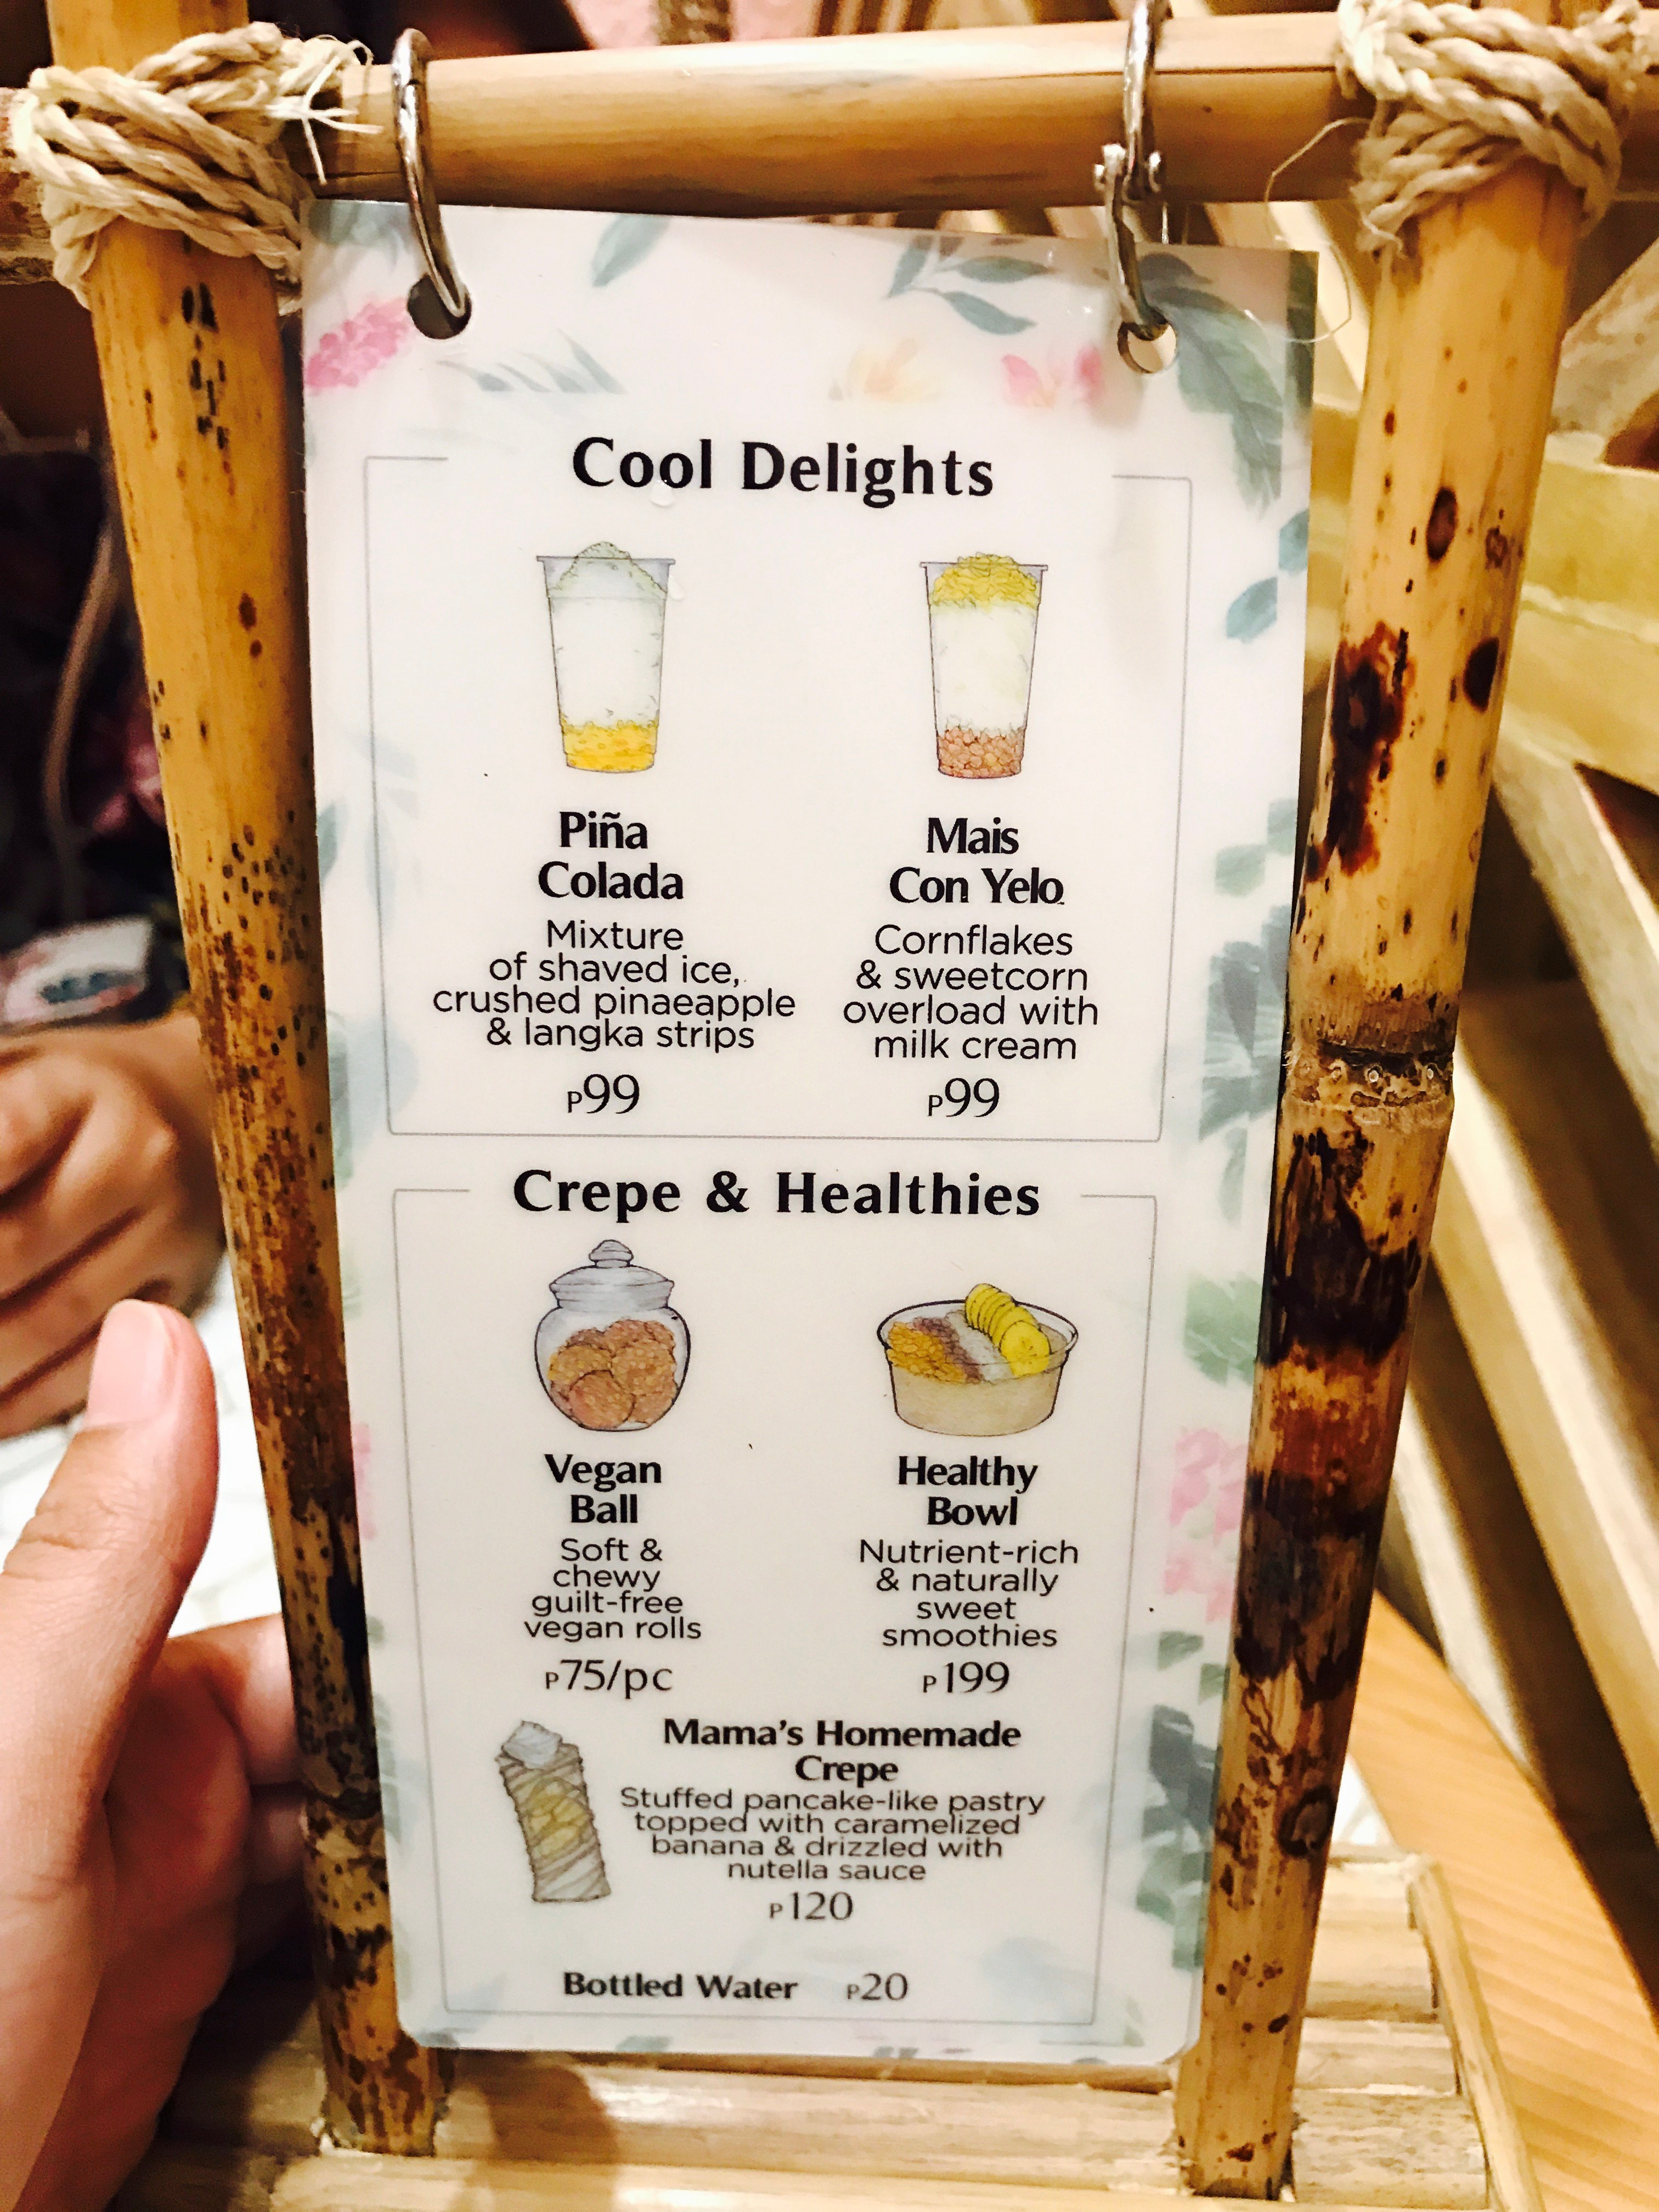 Cool Delights
Piña
Colada
Mixture
of shaved ice,
crushed pinaeapple
& langka strips
P99
Mais
Con Yelo
Cornflakes
& sweetcorn
overload with
milk cream
P99
Crepe & Healthies
Vegan
Ball
Soft &
chewy
guilt-free
vegan rolls
P75/pc
Healthy
Bowl
Nutrient-rich
& naturally
sweet
smoothies
P199
Mama's Homemade
Crepe
Stuffed pancake-like pastry
topped with caramelized
banana & drizzled with
nutella sauce
P120
Bottled Water P20